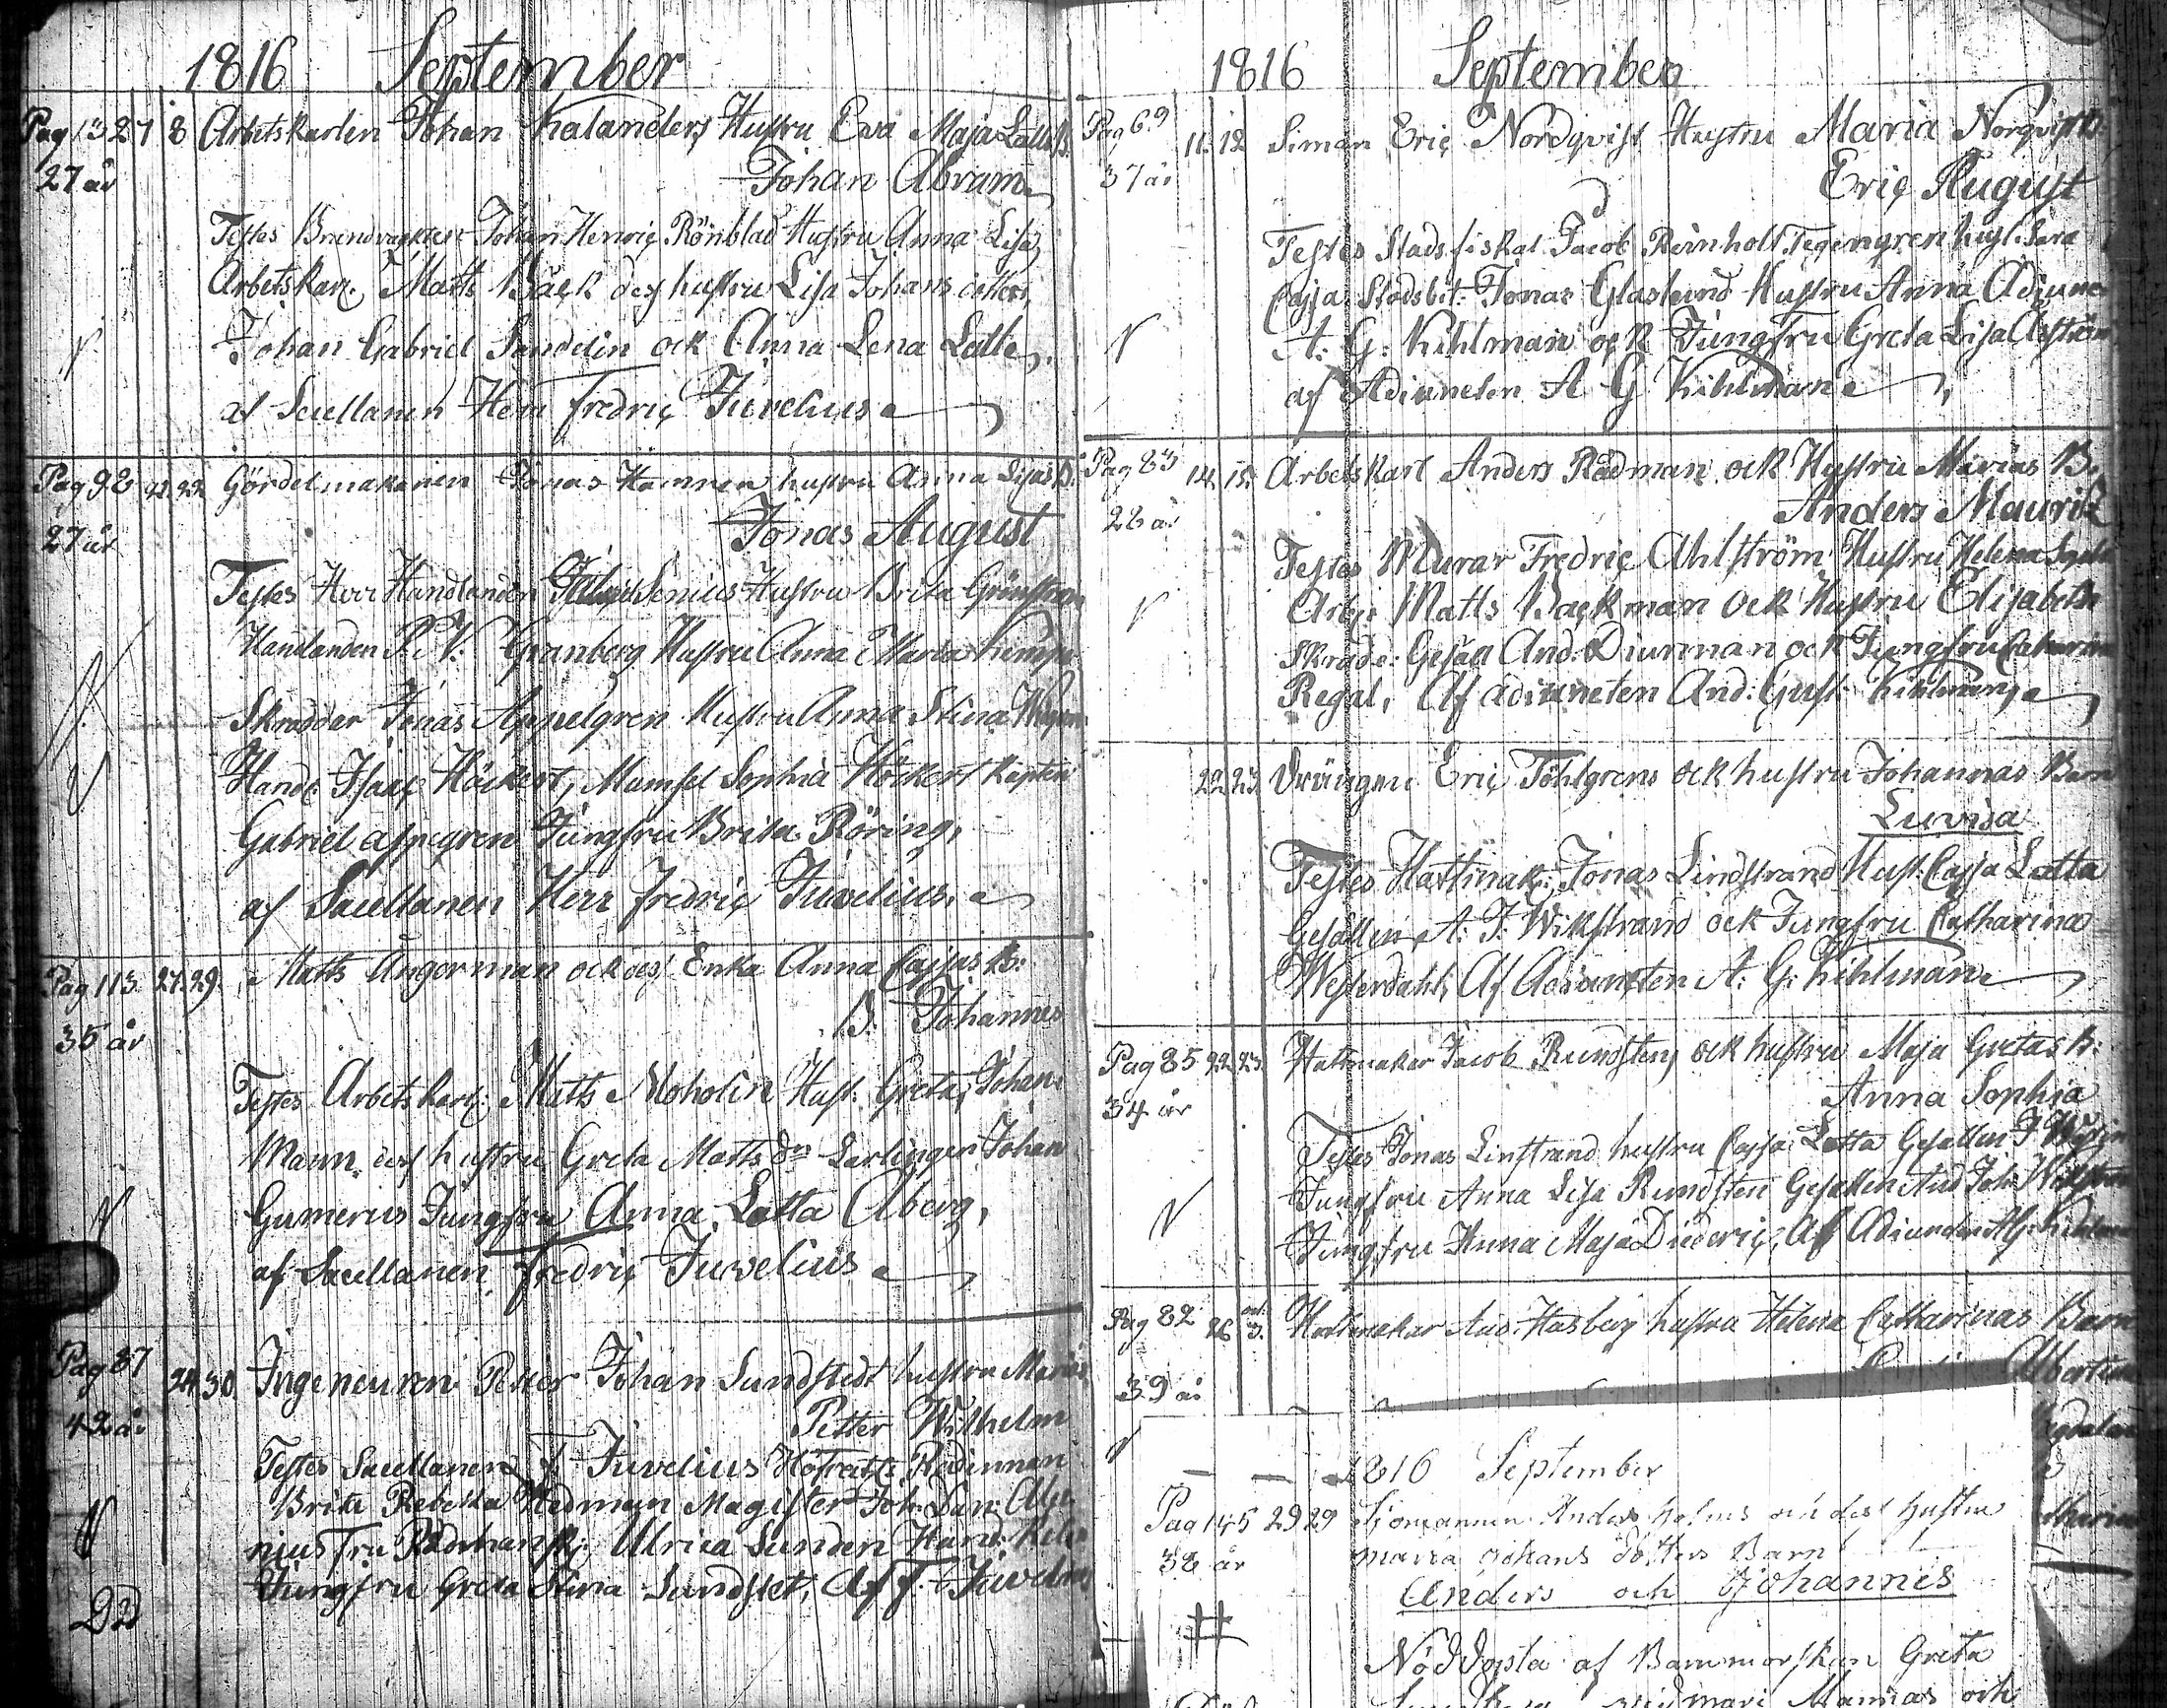 1816 September
Pag 132 7 8 Arbetskarlen Johan Kalanders Hustru Eva Maja Lalls B.
27 år Johan Abram
Testes Johan Henric Rönblad Hustru Anna Lisa
Arbetskarl. Matts Bäck des hustru Lisa Johans
Johan Gabriel Sandelin ock Anna Lena Lalle
af Sacellanen Herr Fredric Juvelius
Pag 98 22 Gördelmakaren Jonas Hamren hustru Anna Lisas B.
27 år Jonas August
Testes Herr Handlanden Senius Hustru Brita
Handlanden P. V. Granberg Hustru Anna Maria
Skradder Jonas Appelgren Hustru Anna Stina
Handl Isaac Höckert, Mamsel Sophia Höckert Kapten
Gabriel Appegren Jungfru Brita Röring,
af Sacellanen Herr Fredric Juvelius.
Pag 113 27 29. Matts Ångerman ock des Enka Anna Cajsas B:
35 år B. Johannes
Testes Arbetskarl: Matts Moholin Hust. Greta, Johan
Mann, des hustru Greta Matts dr Lärlingen Johan
Gumerus Jungfru Anna Lotta Åberg,
af Sacellanen Fredric Juvelius
Pag 87 24 30. Ingeneuren Petter Johan Sundstedt hustru Marias
42 år Petter Wilhelm
Testes Sacellanen F. Juvelius
Brita Rebecka Hedman Magister Joh. Dan: Ale
nius fru Ulrica Sunden Hand:
Jungfru Greta Stina Sundstet, Af F. Juvelius
1816 September
Pag 69 11. 12 Siman Eric Nordqvist Hustru Maria Norqvist B:
37 år Eric August
Testes Stadsfiskal Jacob Reinholt Tegengren hust. Sara
Cajsa, Stadsbet: Jonas Glaslund Hustru Anna Adjunc
A: G: Kihlman ock Jungfru Greta Lisa
af Adiuncten A G Kihlman
Pag 83 14. 15. Arbetskarl Anders Rådman ock Hustru Marias B.
28 år Anders Mauritz
Testes Murar Fredric Ahlström Hustru Helena
Arb: Matts Backman ock Hustru Elisabeth
Skradd: Gesäll And. Diurman ock Jungfru Catharina
Regal, Af adiuncten And: Gust. Kihlman
22 23 Drängen Eric Töhlgrens ock hustru Johannas Barn
Luvisa
Testes Hattmak: Jonas Lindstrand Hust. Cajsa Lotta
Gesällen A: J: Wikstrand ock Jungfru Catharina
Westerdahl, Af Adiuncten A: G: Kihlman
Pag 85 22 23. Hattmakar Jacob Rundsten ock hustru Maja Gretas B:
34 år Anna Sophia
Testes Jonas Linstrand hustru Cajsa Lotta Gesällen J
Jungfru Anna Lisa Rundsten Gesällen And Joh. Wikstran
Jungfru Anna Maja Diederic, Af Adiuncten AG. Kihlman
Pag 82 26 oct. 3. Hattmakar And. Hasberg hustru Helena Catharinas Barn
39 år Albertina
1816 September
Pag 145 29 29 Sjömannen Anders Holms och des hustru
38 år Maria Johans dotters Barn
Anders och Johannis
Nöddöpta af Barnmorskan Greta